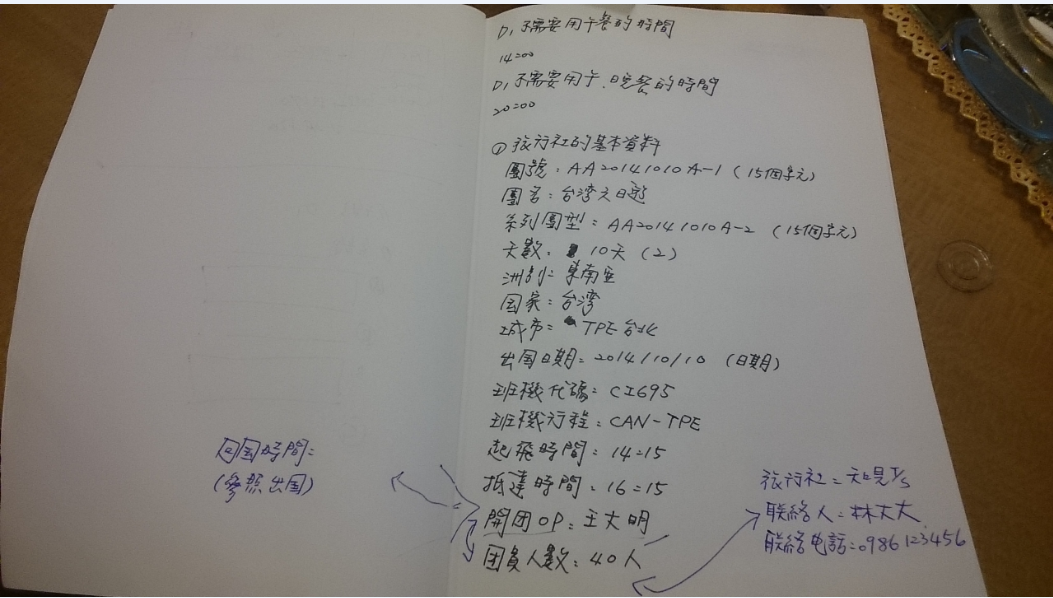 D1 不需要用午餐的時間
14:00
D1 不需要用午.晚餐的時間
20:00
① 旅行社的基本資料
團號:AA20141010A-1 (15個字元)
團名:台湾 日遊
系列團型:AA20141010A-2 (15個字元)
天數: 10天 (2)
洲別:東南亚
国家:台湾
城市: TPE台北
出国日期:2014/10/10 (日期)
班機代號:CI695
班機行程:CAN-TPE
起飛時間:14:15
抵達時間:16:15
開团OP:王大明
团員人數:40人
回国時間:
(參照出国)
旅行社:
联絡人:林大大
联絡电話:0986123456